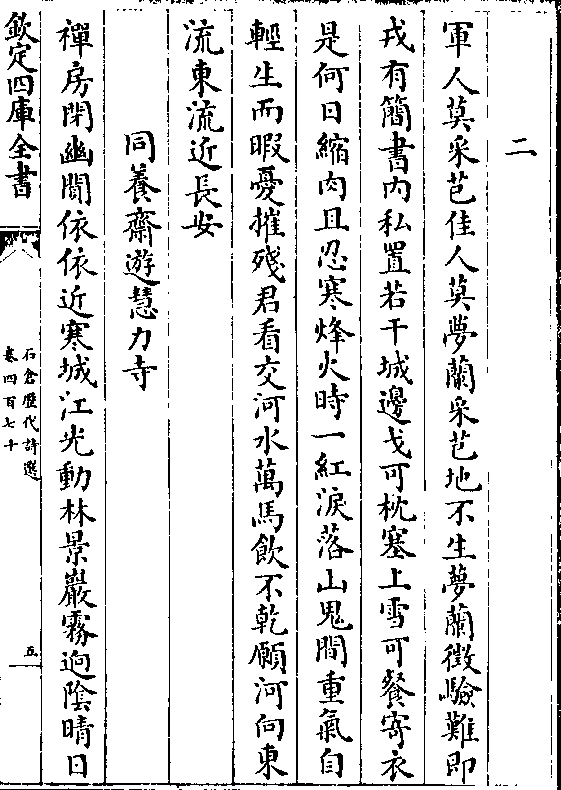 二
軍人莫采芑佳人莫夢蘭采芑地不生夢蘭徴驗難即
戎有簡書内私置若干城邊戈可枕塞上雪可餐寄衣
是何日縮肉且忍寒烽火時一紅淚落山鬼間重氣自
輕生而暇憂摧殘君看交河水萬馬飲不乾願河向東
流東流近長安
同養齋遊慧力寺
禪房閉幽閴依依近寒城江光動林景巖霧逈陰晴日
欽定四庫全書
石倉歴代詩選
卷四百七十
五